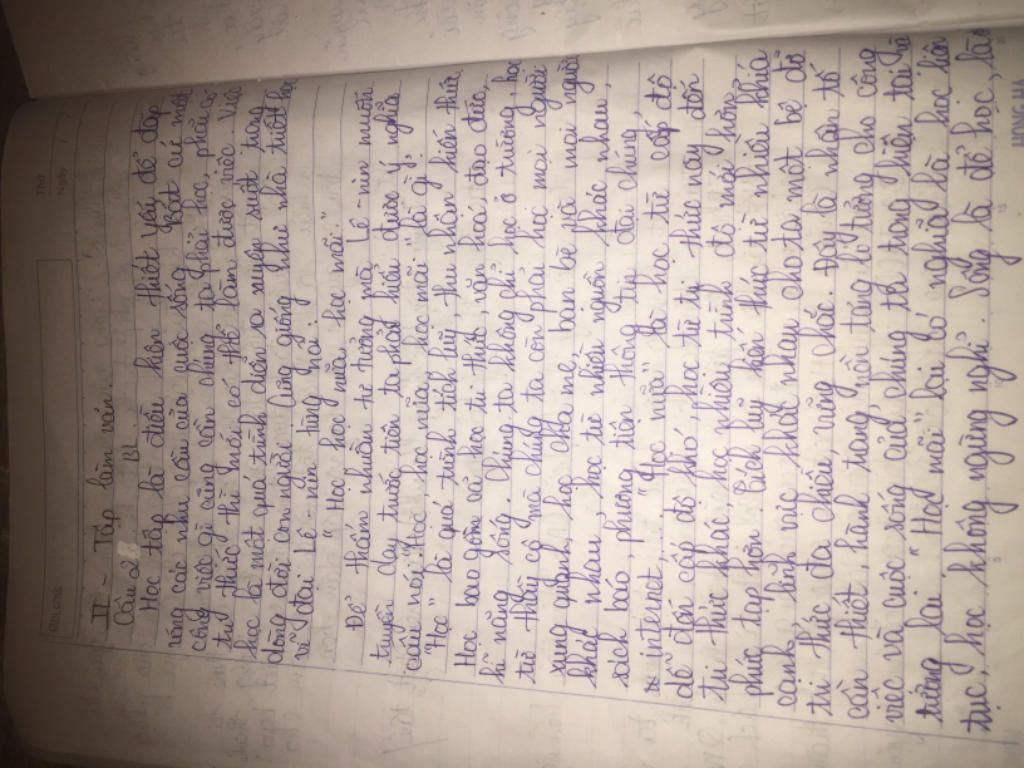 Thứ
Ngày
II - Tập làm văn.
Câu 2 BL
Học tập là điều kiện thiết yếu để đáp
ứng các nhu cầu của cuộc sống. Bất cứ một
công việc gì cũng cần chúng ta phải học, phải có
tri thức thì mới có thể làm được việc. Việc
học là một quá trình diễn ra xuyên suốt trong
dòng đời con người. Cũng giống như nhà triết học
vĩ đại Lê-nin từng nói:
"Học, học nữa, học mãi."
Để thấm nhuần tư tưởng mà Lê-nin muốn
truyền dạy trước tiên ta phải hiểu được ý nghĩa
câu nói: "Học, học nữa, học mãi" là gì?
"Học" là quá trình tích luỹ, thu nhận kiến thức
Học bao gồm cả học tri thức, văn hoá, đạo đức,
kĩ năng sống. Chúng ta không chỉ học ở trường, học
từ thầy cô mà chúng ta còn phải học mọi người
xung quanh, học cha mẹ, bạn bè và mọi người
khác nhau, học từ nhiều nguồn khác nhau,
sách báo, phương tiện thông tin đại chúng,
internet,... "Học nữa" là học từ cấp độ
dễ đến cấp độ khó, học từ tri thức này đến
tri thức khác, học nhiều trình độ mới hơn,
phức tạp hơn. Cách tích luỹ kiến thức từ nhiều khía
cạnh, lĩnh vực khác nhau cho ta một bề dày
tri thức đa chiều, vững chắc. Đây là nhân tố
cần thiết, hành trang, nền tảng lý tưởng cho công
việc và cuộc sống của chúng ta trong hiện tại và
tương lai. "Học mãi" lại có nghĩa là học liên
tục, học không ngừng nghỉ. Sống là để học, làm
HỒNG HÀ